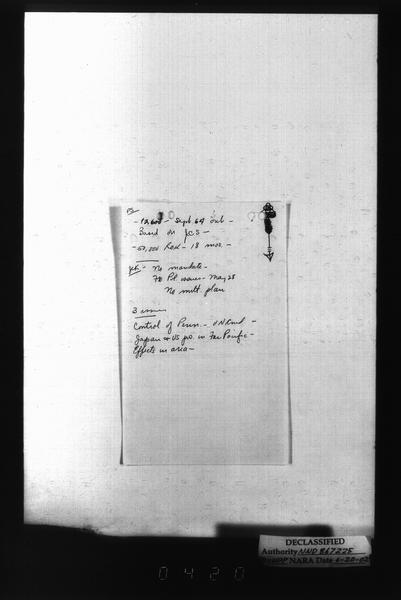 - 12,600 - Sept 64 out -
Based on JCS -
- 50,000 Red - 18 mos. -
- No mandate -
Pol issues - May 28
No milt. plan
3 issues
Control of Penn. - UNCmd -
Japan & US po. in Far Pacific -
Effects in area -
DECLASSIFIED
Authority NND 867225
NARA Date
0420